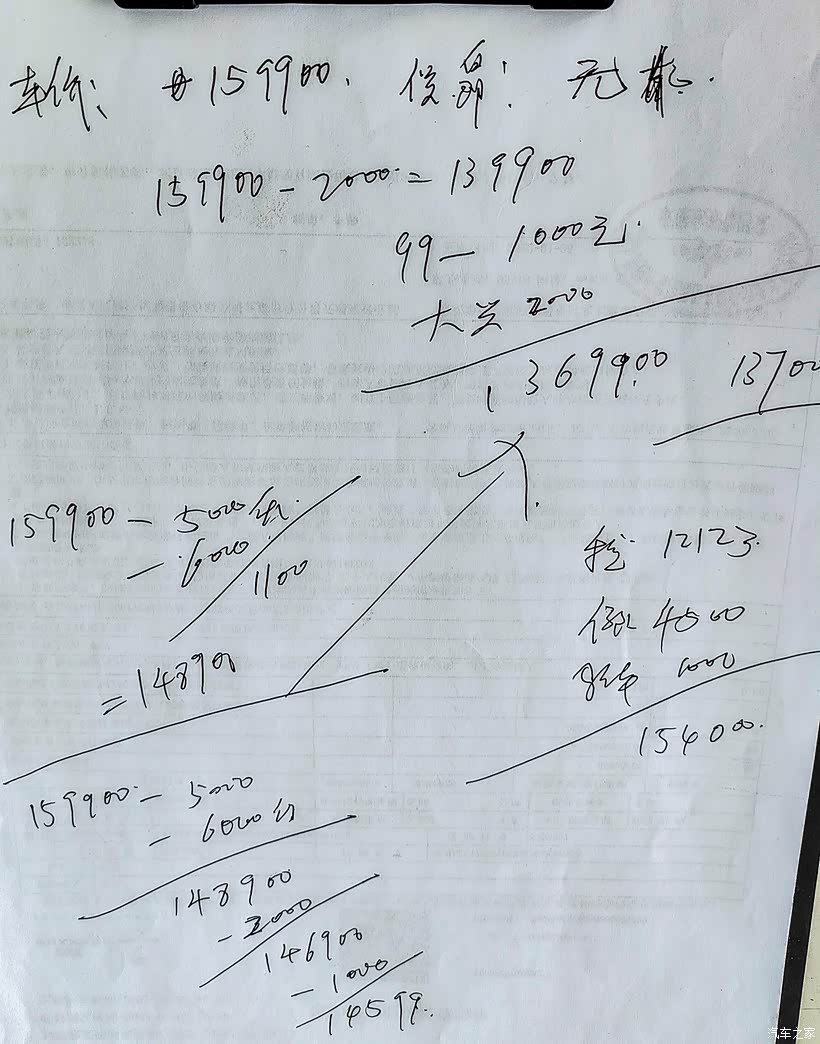 车价: 159900. 优惠: 元.
159900 - 2000 = 139900
99 — 1000元.
大 2000
1369900 13700
159900 - 5000
- 6000
1100
= 148900
12123
保 4000
车 1000
15400.
159900 - 5000
- 6000
148900
- 2000
146900
- 1000
14599..
汽车之家